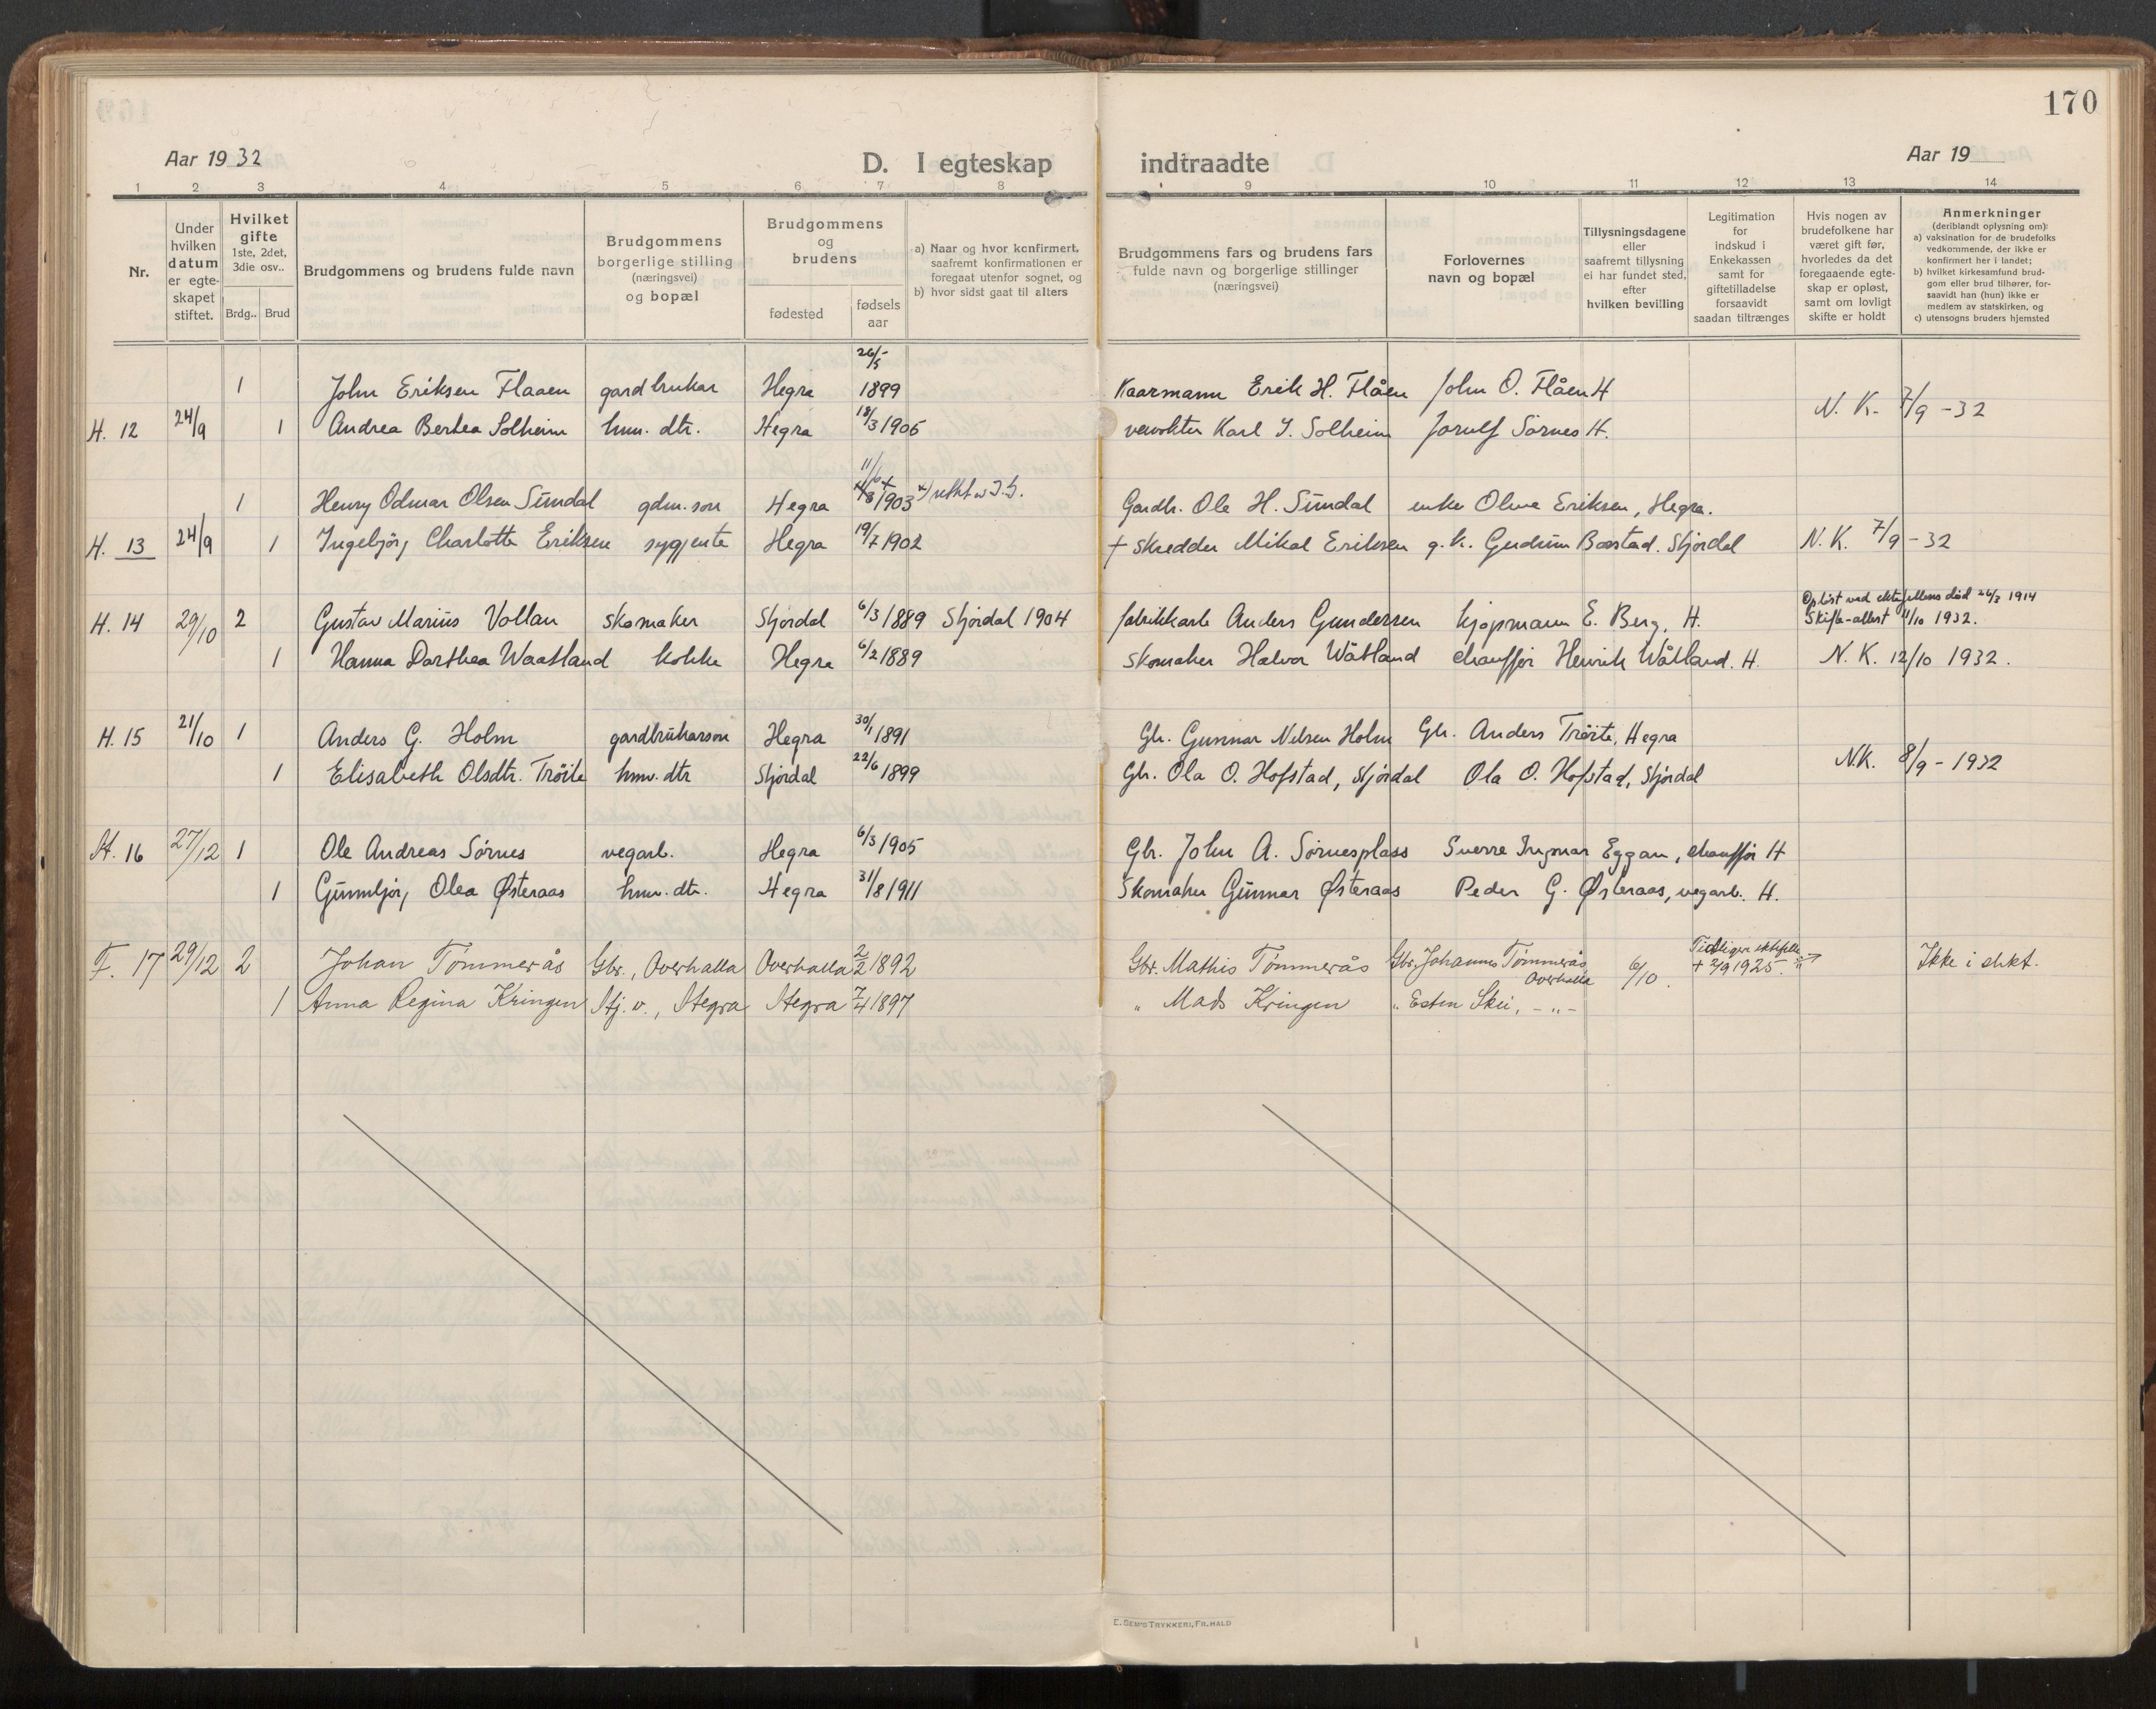 170
Aar 19 32
D. I egteskap indtraadte
Aar 19
1 2 3 4 5 6 7 8 9 10 11 12 13 14
Nr.
Under hvilken datum er egte-skapet stiftet.
Hvilket gifte
1ste, 2det, 3die osv..
Brdg.. Brud
Brudgommens og brudens fulde navn
Brudgommens borgerlige stilling
(næringsvei)
og bopæl
Brudgommens og brudens
fødested
fødsels aar
a) Naar og hvor konfirmert, saafremt konfirmationen er foregaat utenfor sognet, og
b) hvor sidst gaat til alters
Brudgommens fars og brudens fars
fulde navn og borgerlige stillinger
(næringsvei)
Forlovernes navn og bopæl
Tillysningsdagene eller saafremt tillysning ei har fundet sted, efter hvilken bevilling
Legitimation for indskud i Enkekassen samt for giftetilladelse forsaavidt saadan tiltrænges
Hvis nogen av brudefolkene har været gift før, hvorledes da det foregaaende egte-skap er opløst, samt om lovligt skifte er holdt
Anmerkninger
(deriblandt oplysning om):
a) vaksination for de brudefolks vedkommende, der ikke er konfirmert her i landet;
b) hvilket kirkesamfund brud-gom eller brud tilhører, for-saavidt han (hun) ikke er medlem av statskirken, og
c) utensogns bruders hjemsted
1 John Eriksen Flaaen gardbrukar Hegra 26/5 1899 Kaarmann Erik H. Flåen John O. Flåen H
H. 12 24/9 1 Andrea Bertea Solheim hmv. dtr. Hegra 18/3 1906 Karl J. Solheim Jorulf Sørnes H. N. K. 7/9 -32
1 Henry Odmar Olsen Sundal gdm. son Hegra 11/6 1903 Gardbr. Ole H. Sundal enke Oline Eriksen, Hegra.
H. 13 24/9 1 Ingebjørg Charlotte Eriksen sygjente Hegra 19/7 1902 + Skredder Mikal Eriksen g. k. Gudrun Bæstad. Stjørdal N. K. 7/9 -32
H. 14 29/10 2 Gustav Marius Vollan skomaker Stjørdal 6/3 1889 Stjørdal 1904 fabrikkarb Anders Gundersen kjøpmann E. Berg, H. Opløst ved ektefellens død 26/3 1914
Skifte-attest 11/10 1932.
1 Hanna Dorthea Waatland kokke Hegra 6/2 1889 Skomaker Halvor Wåtland chauffør Henrik Wåtland. H. N. K. 12/10 1932.
H. 15 21/10 1 Anders G. Holm gardbrukarson Hegra 30/1 1891 Gbr. Gunnar Nilsen Holm Gbr. Anders Trøite, Hegra
1 Elisabeth Olsdtr. Trøite hmv. dtr Stjørdal 22/6 1899 Gbr. Ola O. Hofstad, Stjørdal Ola O. Hofstad, Stjørdal N.K. 8/9 - 1932
H. 16 27/12 1 Ole Andreas Sørnes vegarb. Hegra 6/3 1905 Gbr. John A. Sørnesplass Sverre Ingmar Eggan, chauffør H
1 Gunnbjørg Olea Østeraas hmv. dtr. Hegra 31/8 1911 Skomaker Gunnar Østeraas Peder G. Østeraas, vegarb. H.
F. 17 29/12 2 Johan Tømmerås Gbr., Overhalla Overhalla 2/2 1892 Gbr. Mathis Tømmerås Gbr. Johannes Tømmerås, Overhalla 6/10. Tidligere ektefelle + 2/9 1925. Ikke i slekt.
1 Anna Regina Kringen Hj. v., Hegra Hegra 7/4 1897 " Mads Kringen " Esten Skei, - " -
E. SEM'S TRYKKERI, FR.HALD